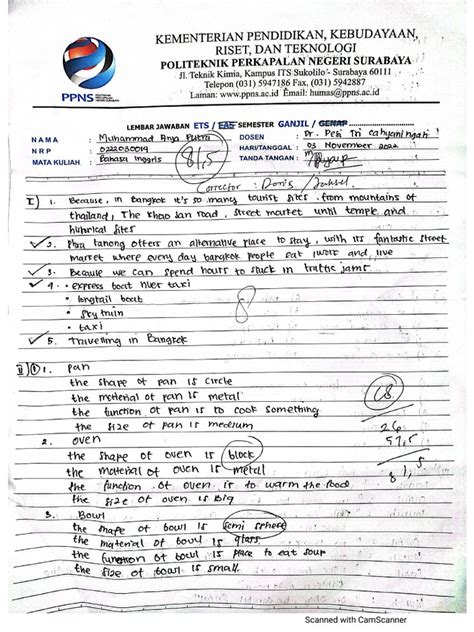 KEMENTERIAN PENDIDIKAN, KEBUDAYAAN,
RISET, DAN TEKNOLOGI
POLITEKNIK PERKAPALAN NEGERI SURABAYA
Jl. Teknik Kimia, Kampus ITS Sukolilo - Surabaya 60111
Telepon (031) 5947186 Fax. (031) 5942887
Laman: www.ppns.ac.id Email: humas@ppns.ac.id
PPNS
LEMBAR JAWABAN ETS / EAS SEMESTER GANJIL / GENAP
NAMA : Muhammad Arya Putra
NRP : 0222030019
MATA KULIAH : Bahasa Inggris
81,5
DOSEN : Dr. Peni Tri Cahyaningati
HARI/TANGGAL : 03 November 2022
TANDA TANGAN :
Corrector : Doris /
I) 1. Because, in Bangkok it's so many tourist sites, from mountains of
thailand, The Khao San road, Street market until temple and
historical sites
2. Phra kanong offers an alternative place to stay, with its fantastic street
market where every day bangkok people eat, work and live
3. Because we can spend hours to stuck in traffic jams
4. • express boat river taxi
• longtail boat
• sky train
• taxi
8
5. Travelling in Bangkok
II) 1) 1. Pan
the shape of pan is circle
the material of pan is metal
the function of pan is to cook something
the size of pan is medium
68
26
57,5
81,5
2. oven
the shape of oven is block
the material of oven is metal
the function of oven is to warm the food
the size of oven is big
3. Bowl
the shape of bowl is semi sphere
the material of bowl is glass
the function of bowl is place to eat soup
the size of bowl is small
Scanned with CamScanner